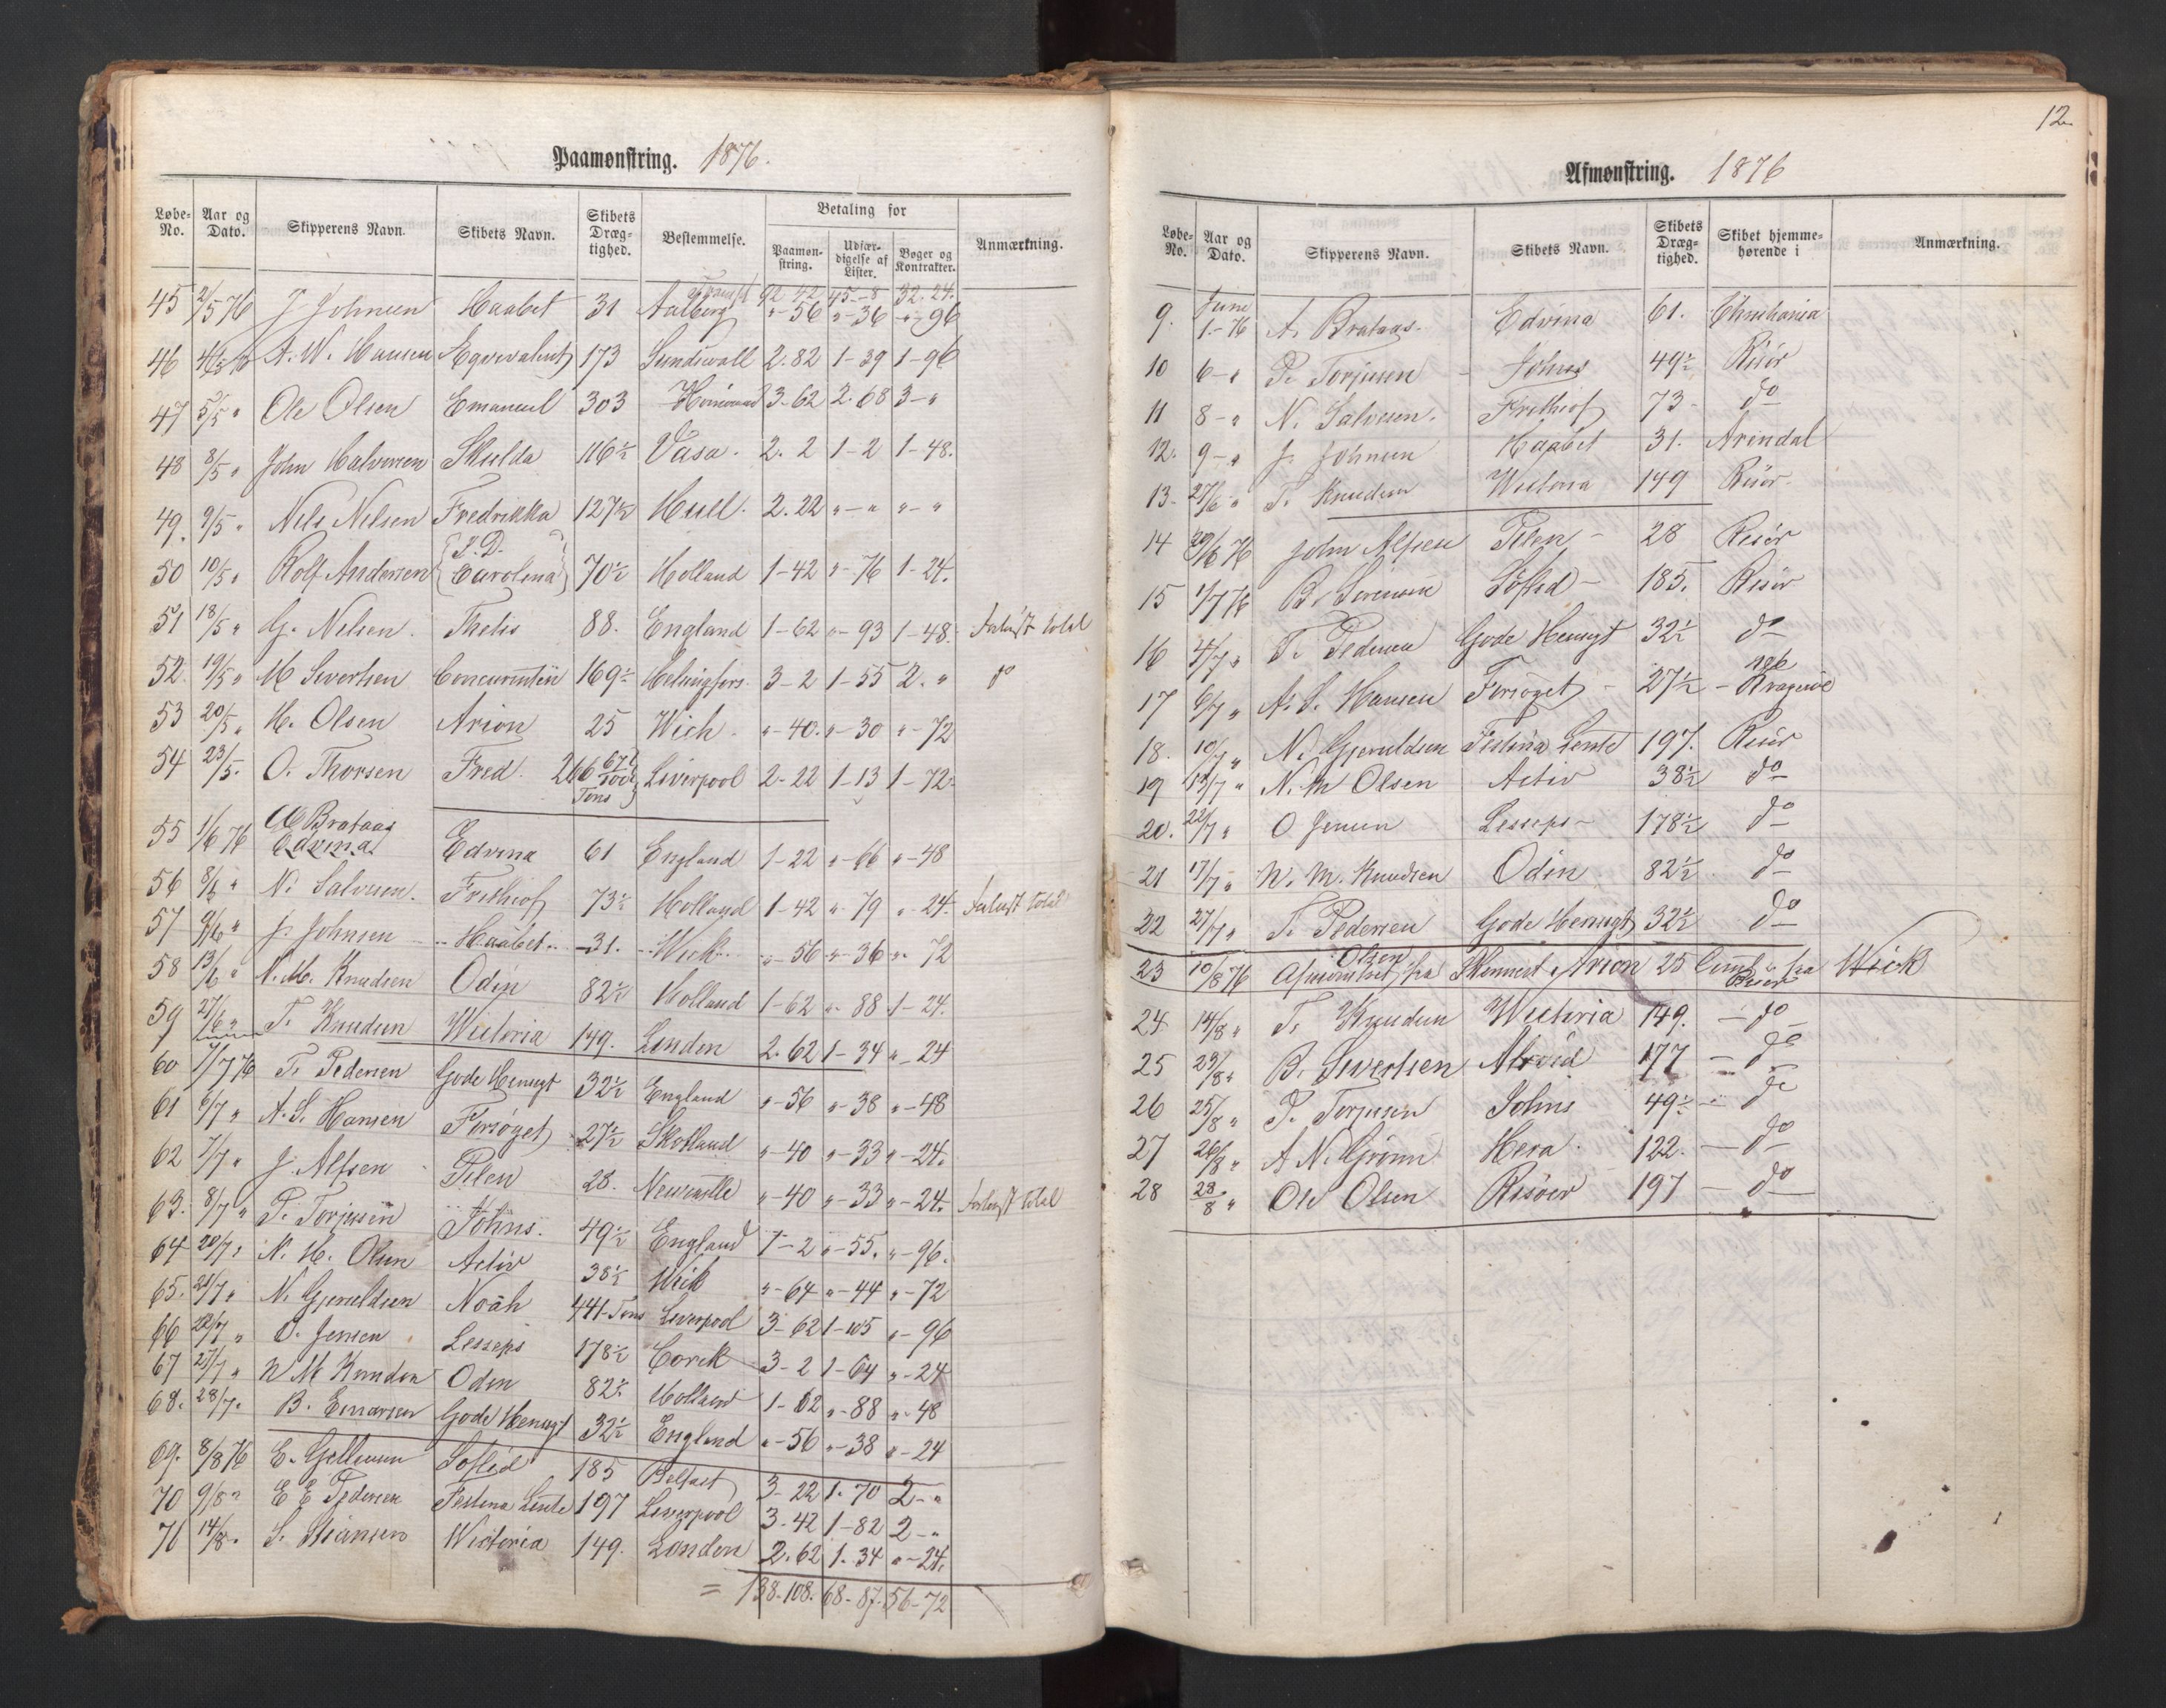 Paamønstring. 1876.
Løbe-No. Aar og Dato. Skipperens Navn. Skibets Navn. Skibets Dræg-tighed. Bestemmelse. Betaling for Paamøn-string. Udfær-digelse af Lister. Bøger og Kontrakter. Anmærkning.
Transpt 92-42 45-8 32-24.
45 2/5 76 J Johnsen Haabet 31 Aalborg "-56 "-36 "-96
46 4/5 76 A. W. Hansen Eqvivalent 173 Sundsvall 2.82 1-39 1-96
47 5/5 " Ole Olsen Emanuel 303 3-62 2.68 3-"
48 8/5 " John Halvorsen Skulda 116½ Vasa. 2.2 1-2 1-48.
49. 9/5 " Nels Nelsen Fredrikka 127½ Hull. 2.22 "-" "-"
50 10/5 " Rolf Andersen {S.D. Carolina} 70½ Holland 1-42 "-76 1-24.
51 18/5 " G. Nelsen. Thetis 88. England 1-62 "-93 1-48.
52. 19/5 " M Sivertsen Concurrenten 169½ Helsingfors. 3-2 1-55 2." do
53 20/5 " H. Olsen Arion 25 Wich. "-40. "-30 "-72
54 23/5. O. Thorsen Fred. 266 67/100 Tons Liverpool 2-22 1-13 1-72.
55 1/6 76 A Brataas Edvina Edvina 61 England 1-22 "-66 "-48
56 8/6 " N. Salvesen. Frithiof 73½ Holland 1-42 "-79 "-24.
57 9/6 " J. Johnsen Haabet 31. Wick "-56 "-36 "-72
58 13/6 " N. M. Knudsen Odin 82½ Holland 1-62 "-88 1-24.
59 27/6 " T. Knudsen Wictoria 149. London 2.62 1-34 "-24
60 1/7 76 T. Pedersen Gode Hensigt 32½ England "-56 "-38 "-48
61 6/7 " A. S. Hansen Forsøget 27½ Skotland "-40 "-33 "-24.
62 7/7 " J. Alfsen Pilen 28. Newcastle "-40 "-33 "-24.
63. 8/7 " P. Torjusen Johns. 49½ England 1-2 "-55. "-96.
64 20/7 " N. M. Olsen Activ 38½ Wick "-64 "-44 "-72
65. 21/7 " N. Gjeruldsen Noah 441 Tons Liverpool 3-62 1-105 "-96
66 22/7 " O. Jensen Lesseps 178½ Corck 3-2 1-64 "-24
67 27/7 " N M Knudsen Oden 82½ Holland 1-62 "-88 "-48
68. 28/7. B. Einarsen Gode Hensigt 32½ England "-56 "-38 "-24
69. 8/8 76 E. Gjellesen Sofied 185 Belfast 3-22 1.70 2-"
70 9/8 " E E Pedersen Festina Lente 197 Liverpool 3-42 1-82 2-"
71 14/8. S. Stiansen Wictoria 149. London 2.62 1.34 "-24.
= 138.108. 68-87. 56-72
12
Afmønstring. 1876
Løbe-No. Aar og Dato. Skipperens Navn. Skibets Navn. Skibets Dræg-tighed. Skibet hjemme-hørende i Anmærkning.
9. June 1.-76 A. Brataas. Edvina 61. Christiania
10 6-" P. Torjusen Johns 49½ Risör
11 8-" N. Salvesen. Frithiof 73- do
12. 9-" J. Johnsen Haabet 31. Arendal
13. 27/6 " T. Knudsen Wictoria 149 Risör.
14 29/6 76 John Alfsen Pilen 28 Risör
15 1/7 76 B. Sivertsen Sofied 185. Risör
16 4/7 " T. Pedersen Gode Hensigt 32½ do
17 6/7 " A. S. Hansen Forsöget 27½ Kragerøe
18. 10/7 " N. Gjeruldsen Festina Lente 197. Risör
19 13/7 " N. M Olsen Activ 38½ do
20. 22/7 " O Jensen Lesseps 178½ do
21 17/7 " N. M. Knudsen Odin 82½ do
22 27/7 " T. Pedersen Gode Hensigt 32½ do
23 10/8 76 Olsen Afmønstret fra Skonnert Arion 25 Coml Risör fra Wick
24 14/8 " T. Knudsen Wictoria 149. do
25 23/8 " B. Sivertsen Alrvid 177 do
26 25/8 " P. Torjusen Johns 49½ do
27 26/8 " A N. Grønn Hera 122. do
28 28/8 " Ole Olsen Risöer 197 do